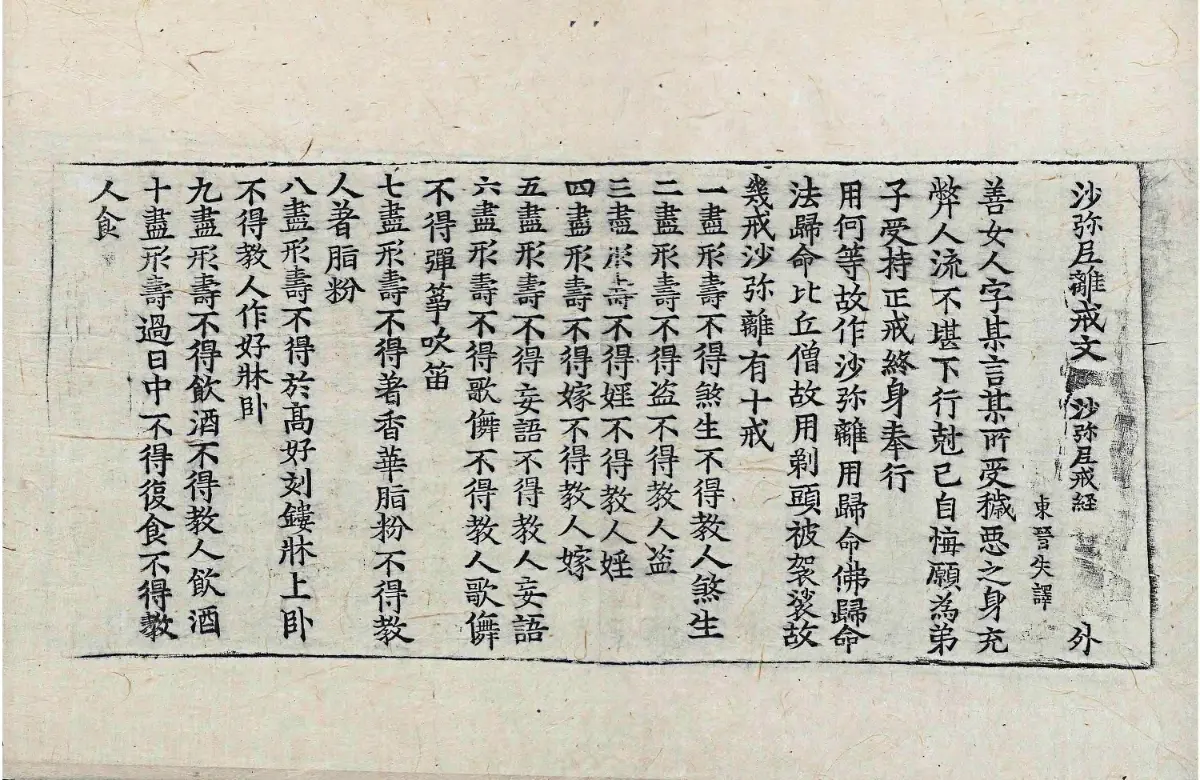 沙弥尼離戒文 沙弥尼戒経 外
東晉失譯
善女人字某言某所受穢惡之身充
弊人流不堪下行尅己自悔願為弟
子受持正戒終身奉行
用何等故作沙弥離用歸命佛歸命
法歸命比丘僧故用剃頭被袈裟故
幾戒沙弥離有十戒
一盡形壽不得煞生不得教人煞生
二盡形壽不得盗不得教人盗
三盡形壽不得婬不得教人婬
四盡形壽不得嫁不得教人嫁
五盡形壽不得妄語不得教人妄語
六盡形壽不得歌儛不得教人歌儛
不得彈筝吹笛
七盡形壽不得著香華脂粉不得教
人著脂粉
八盡形壽不得於髙好刻鏤牀上卧
不得教人作好牀卧
九盡形壽不得飲酒不得教人飲酒
十盡形壽過日中不得復食不得教
人食